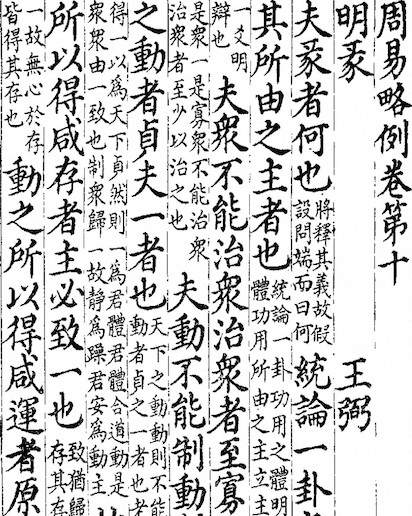 周易略例卷第十
明彖 王弼
夫彖者何也
將釋其義故假
設問端而曰何
統論一卦
其所由之主者也
統論一卦功用之體明
體功用所由之主立主
一爻明
辯也
夫衆不能治衆治衆者至寡
是衆一是寡衆不能治衆
治衆者至少以治之也
夫動不能制動
之動者貞夫一者也
天下之動動則不能
動者貞之一者也老
得一以為天下貞然則一為君體君體合道動是
衆衆由一致也制衆歸一故静為躁君安為動主
所以得咸存者主必致一也
致猶歸
存其存
一故無心於存
皆得其存也
動之所以得咸運者原